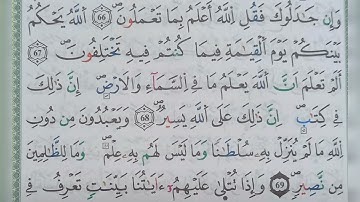 وَإِن جَٰدَلُوكَ فَقُلِ ٱللَّهُ أَعْلَمُ بِمَا تَعْمَلُونَ ۝٦٦ ٱللَّهُ يَحْكُمُ
بَيْنَكُمْ يَوْمَ ٱلْقِيَٰمَةِ فِيمَا كُنتُمْ فِيهِ تَخْتَلِفُونَ ۝٦٧
أَلَمْ تَعْلَمَ اَنَّ ٱللَّهَ يَعْلَمُ مَا فِي ٱلسَّمَآءِ وَٱلَارْضِ إِنَّ ذَٰلِكَ
فِي كِتَٰبٍ اِنَّ ذَٰلِكَ عَلَى ٱللَّهِ يَسِيرٌ ۝٦٨ وَيَعْبُدُونَ مِن دُونِ
ٱللَّهِ مَا لَمْ يُنَزِّلْ بِهِۦ سُلْطَٰنًا وَمَا لَيْسَ لَهُم بِهِۦ عِلْمٌ وَمَا لِلظَّٰلِمِينَ
مِن نَّصِيرٍ ۝٦٩ وَإِذَا تُتْلَىٰ عَلَيْهِمُۥٓ ءَايَٰتُنَا بَيِّنَٰتٍ تَعْرِفُ فِي